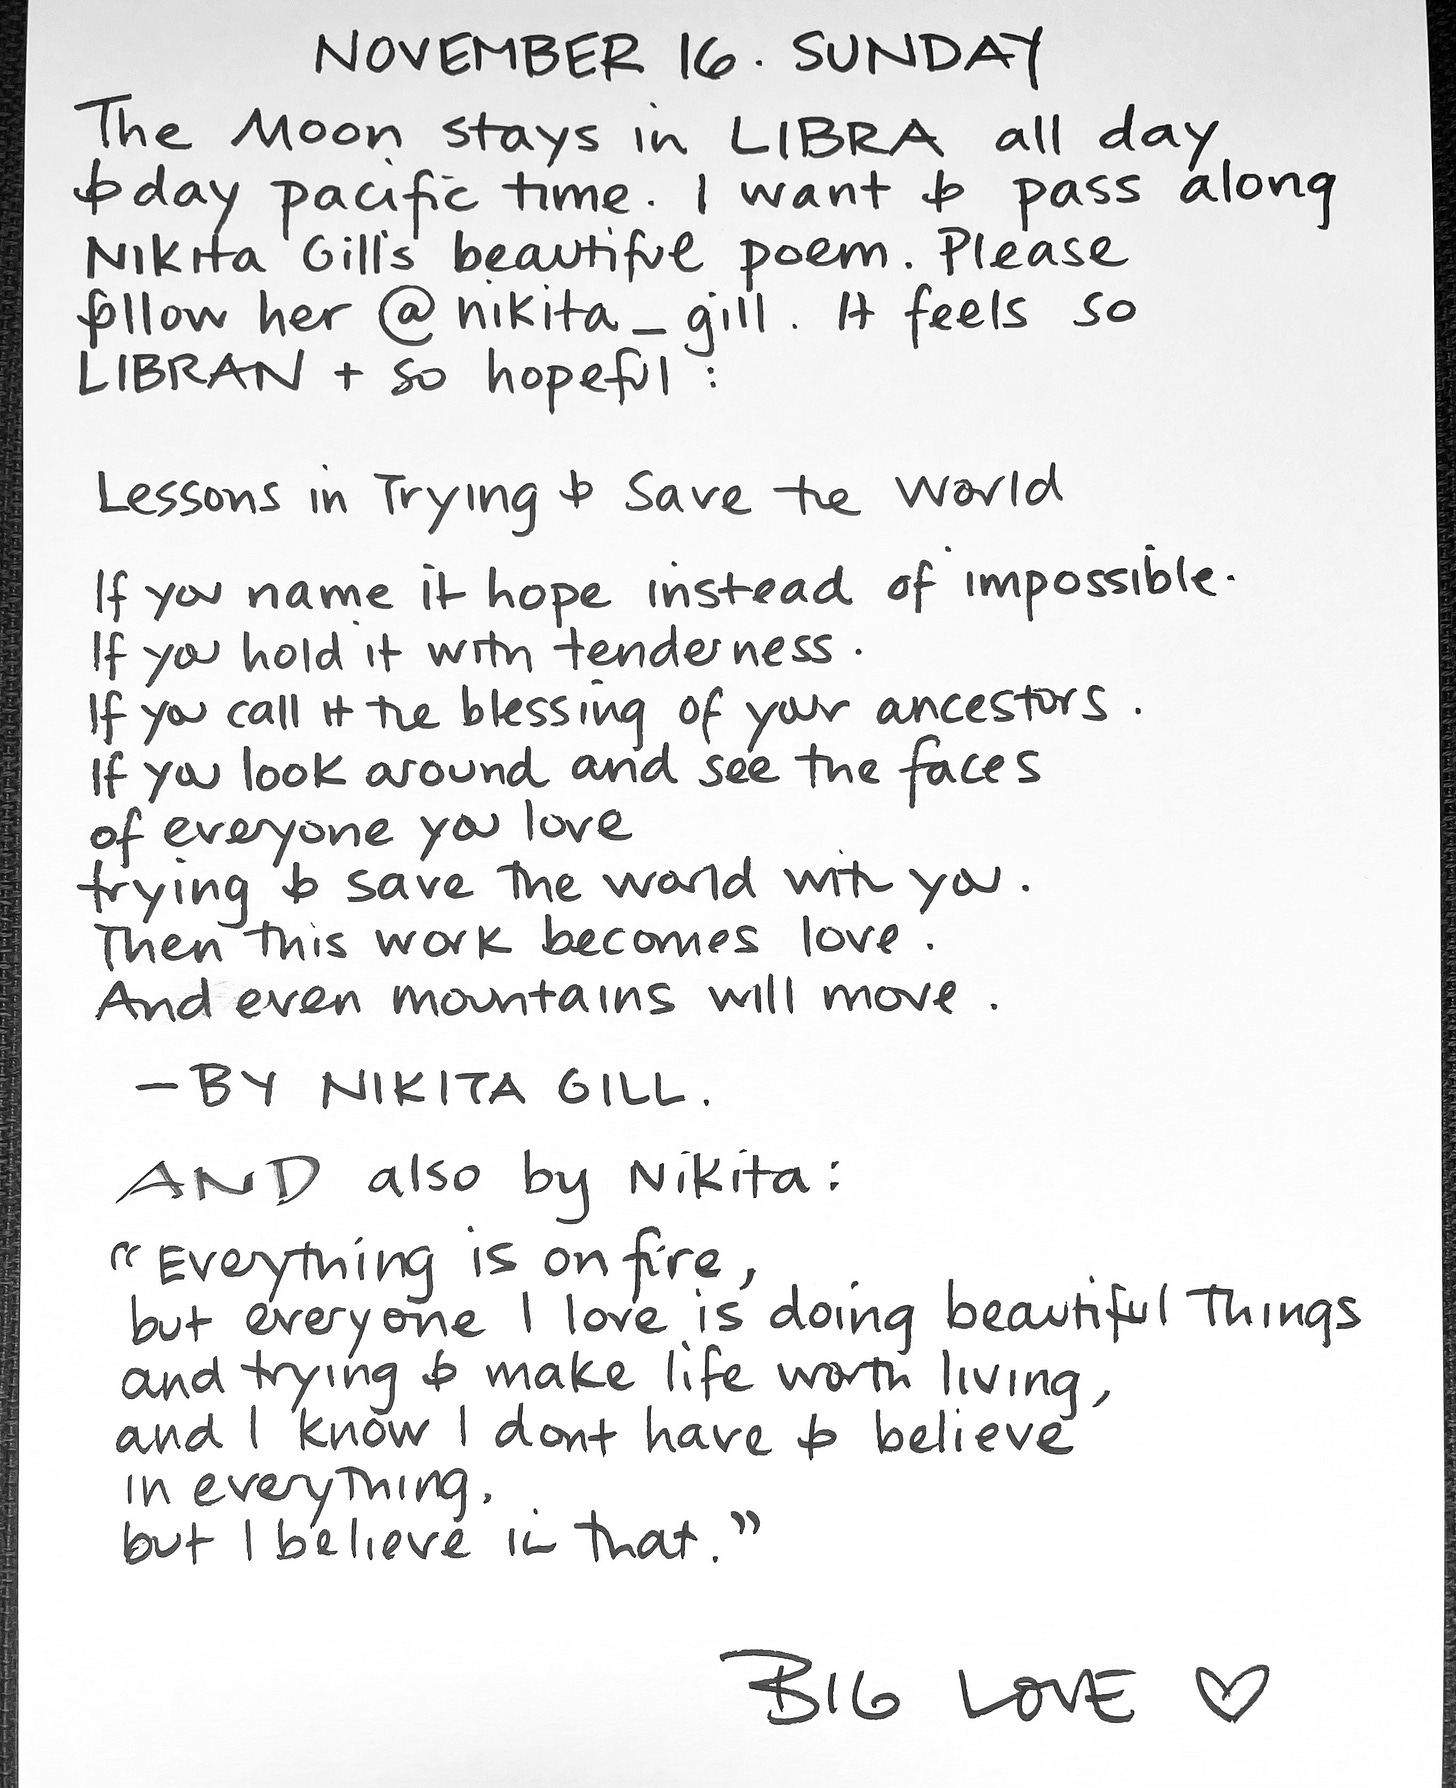 NOVEMBER 16. SUNDAY
The Moon stays in LIBRA all day
today pacific time. I want to pass along
Nikita Gill's beautiful poem. Please
follow her @nikita_gill. It feels so
LIBRAN + so hopeful:
Lessons in Trying to Save the World
If you name it hope instead of impossible.
If you hold it with tenderness.
If you call it the blessing of your ancestors.
If you look around and see the faces
of everyone you love
trying to save the world with you.
Then this work becomes love.
And even mountains will move.
—BY NIKITA GILL.
AND also by Nikita:
“Everything is on fire,
but everyone I love is doing beautiful things
and trying to make life worth living,
and I know I dont have to believe
in everything,
but I believe in that.”
BIG LOVE ♡